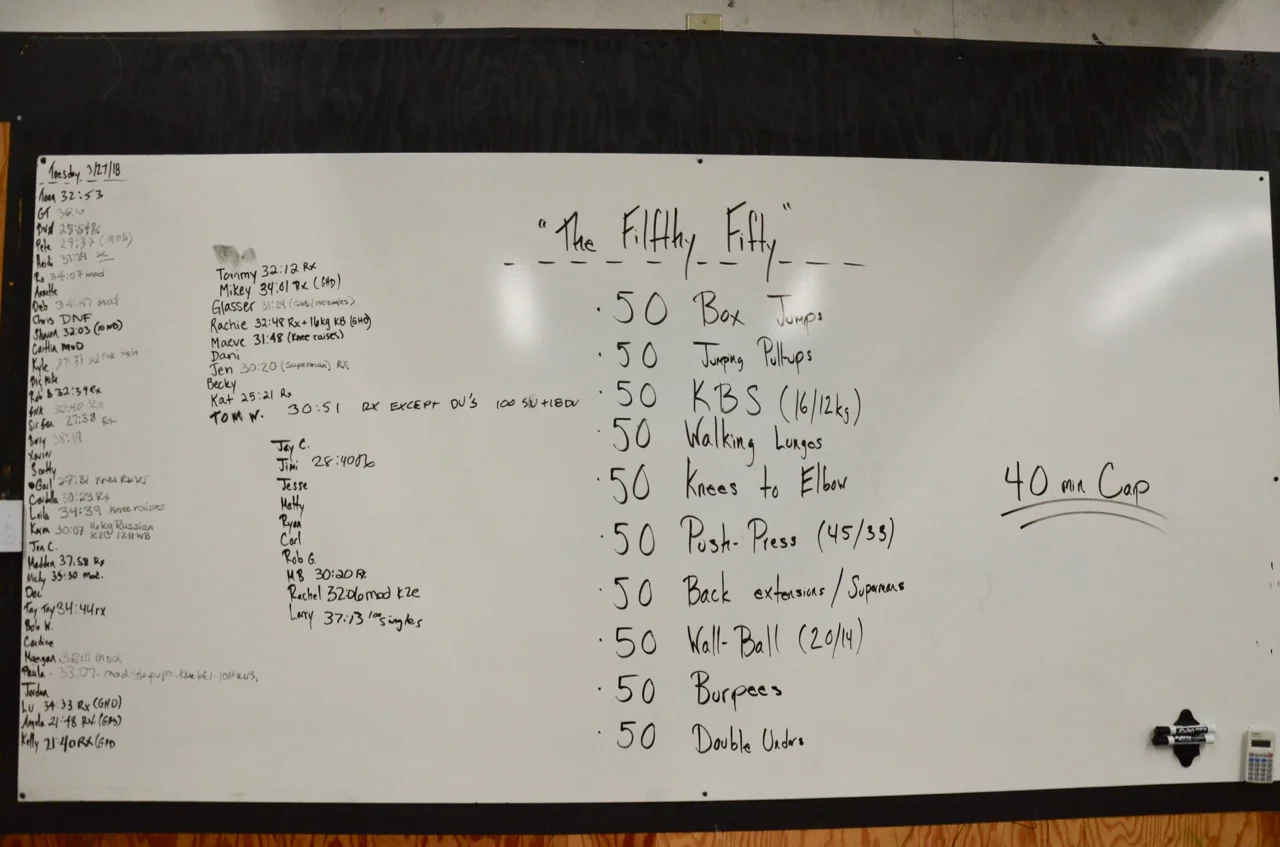 Tuesday, 3/27/18
32:53
GT
Pete 29:37 (MOD)
Ro 34:07 mod
Annette
Deb 34:47 mod
Chris DNF
Shawn 32:03 (10 WB)
Caitlin MOD
Kyle
Big Mike
Rob B 32:39 Rx
Erik 32:40 Rx
27:38 Rx
38:19
Xavier
Scotty
Gail 27:31 Knee Raises
30:23 Rx
Leila 34:39 Knee raises
Karen 30:07 16kg Russian
K2C 12# WB
Jen C.
Madden 37:58 Rx
Nicky 35:30 mod.
Doc
Tay Tay 34:44 rx
Bob W.
Candice
Maegan 32:11 mod
Paula - 33:07 - mod
Jordan
Lu 34:33 Rx (GHD)
Angela 21:48 RX (GHD)
Kelly 21:40 RX (GHD
Tammy 32:12 Rx
Mikey 34:01 Rx (GHD)
Glasser
Rachie 32:48 Rx + 16kg KB (GHD)
Maeve 31:48 (Knee raises)
Dani
Jen 30:20 (Superman) RX
Becky
Kat 25:21 Rx
TOM W. 30:51 RX EXCEPT DU'S 100 SU + 18 DU
Jay C.
Jimi 28:40
Jesse
Matty
Ryan
Carl
Rob G.
MB 30:20 Rx
Rachel 32:06 mod K2e
Larry 37:13 100 singles
"The Filfthy Fifty"
· 50 Box Jumps
· 50 Jumping Pull-ups
· 50 KBS (16/12kg)
· 50 Walking Lunges
· 50 Knees to Elbow
· 50 Push-Press (45/33)
· 50 Back extensions/Supermans
· 50 Wall-Ball (20/14)
· 50 Burpees
· 50 Double Unders
40 min Cap